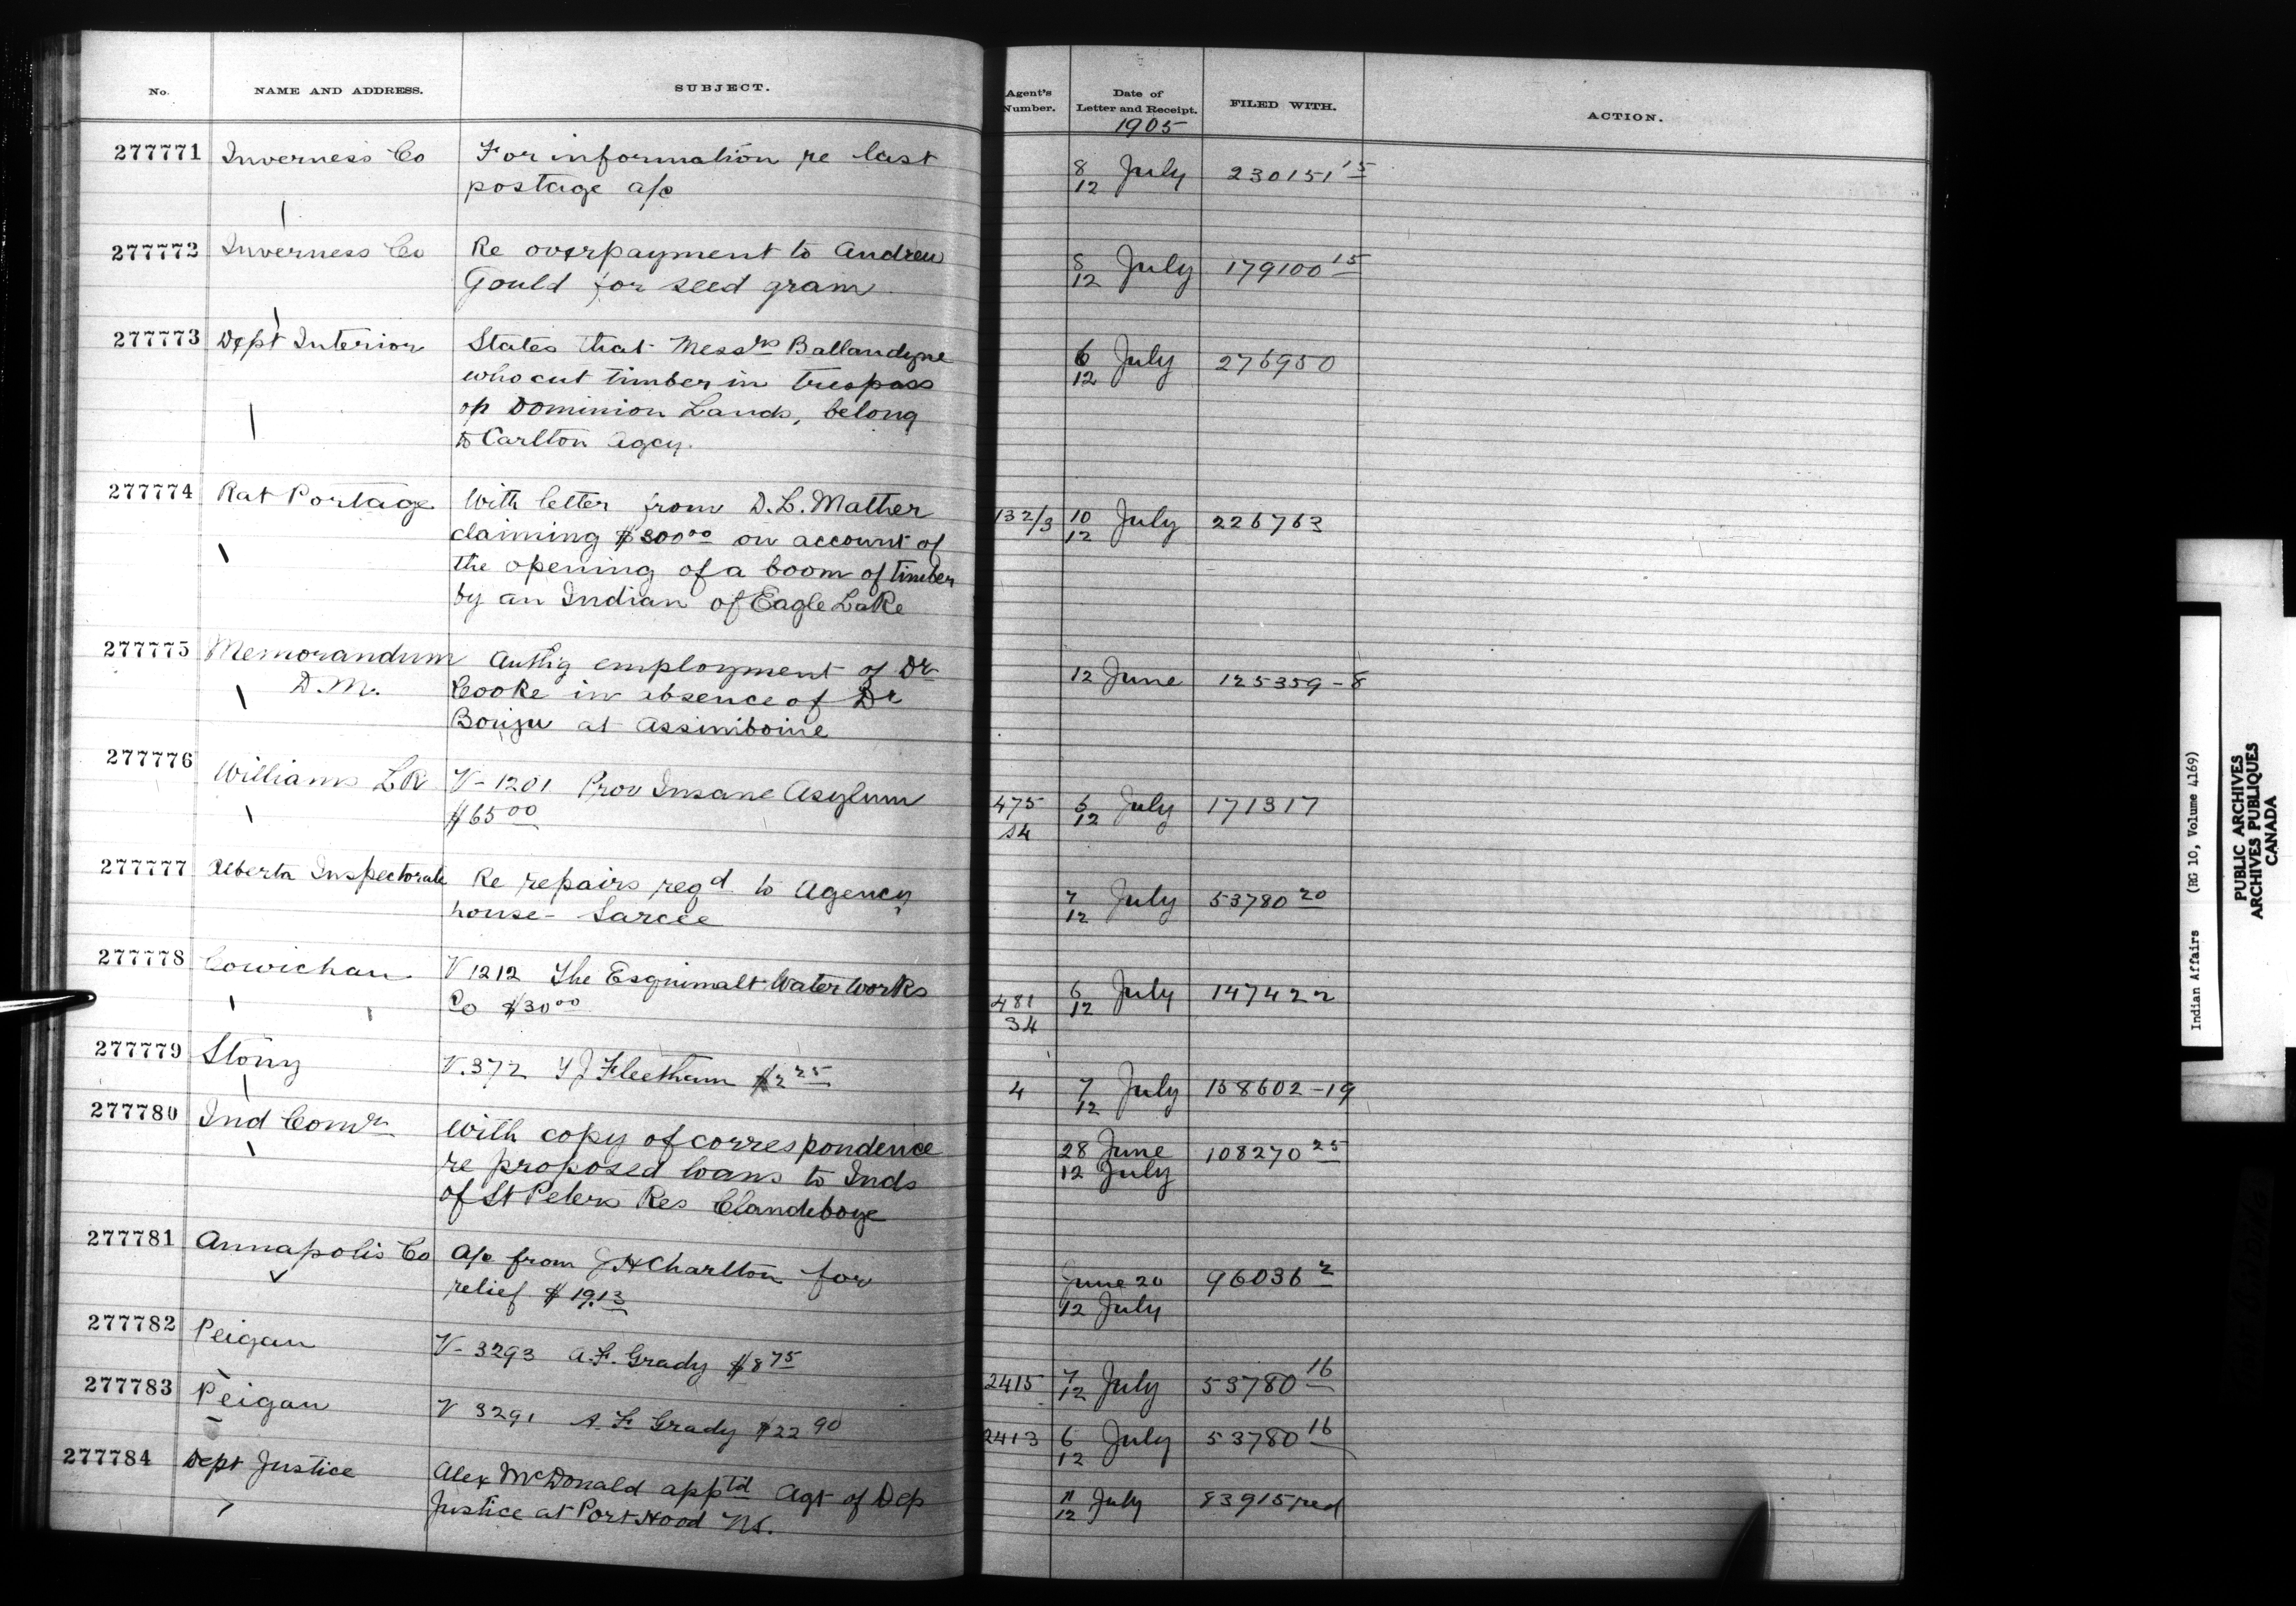 No. NAME AND ADDRESS. SUBJECT. Agent's Number. Date of Letter and Receipt. FILED WITH. ACTION.
1905
277771 Inverness Co For information re last 8 July 230151 15
postage a/c 12
277772 Inverness Co Re overpayment to Andrew 8 July 179100 15
Gould for seed gram 12
277773 Dept Interior States that Messrs Ballandyne 6 July 276950
who cut timber in trespass 12
on Dominion Lands, belong
to Carlton Agcy.
277774 Rat Portage With letter from D.L. Mather 132/3 10 July 226763
claiming $300 00 on account of 12
the opening of a boom of timber
by an Indian of Eagle Lake
277775 Memorandum Authig employment of Dr 12 June 125359-8
D.M. Cooke in absence of Dr
at Assiniboine
277776 Williams LR V-1201 Prov Insane Asylum 475 July 171317
$65 00 12
277777 Alberta Inspectorate Re repairs reqd to Agency 7 July 53780 20
house - Sarcee 12
277778 Cowichan V 1212 The Esquimalt Water Works 481 6 July 147422
Co $30 00 34 12
277779 Stony V.372 Fleetham $2 25 4 7 July 158602-19
12
277780 Ind Comr With copy of correspondence 28 June 108270 25
re proposed loans to Inds 12 July
of St Peters Res Clandeboye
277781 Annapolis Co A/c from J H Charlton for June 20 96036 2
relief $19.13 12 July
277782 Peigan V-3293 A.F. Grady $8 75 2415 7 July 53780 16
12
277783 Peigan V 3291 A.F. Grady $22 90 2413 6 July 53780 16
12
277784 Dept Justice Alex McDonald apptd Agt of Dep 11 July 83915 red
Justice at Port Hood NS. 12
Indian Affairs (RG 10, Volume 4169)
PUBLIC ARCHIVES
ARCHIVES PUBLIQUES
CANADA